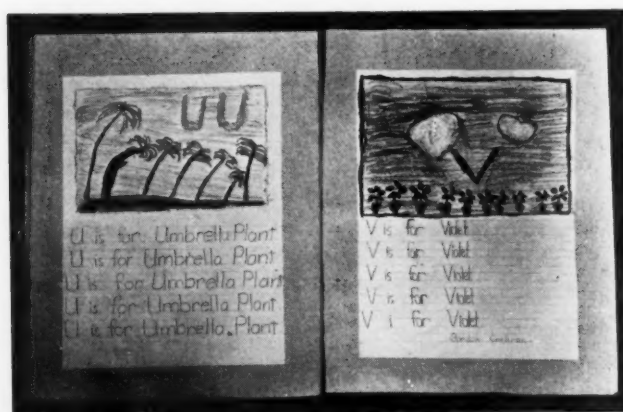 U U
U is for Umbrella Plant
U is for Umbrella Plant
U is for Umbrella Plant
U is for Umbrella Plant
U is for Umbrella Plant
V
V is for Violet
V is for Violet
V is for Violet
V is for Violet
V i for Violet